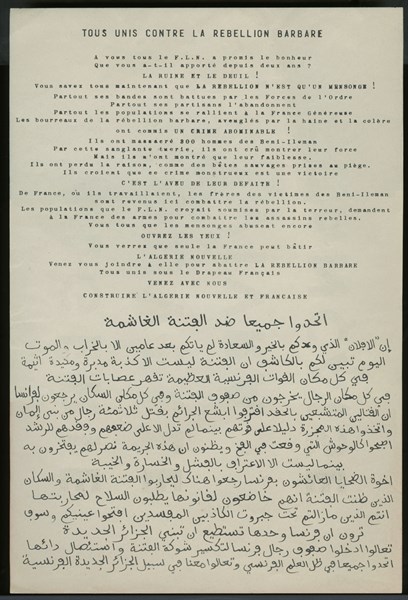 TOUS UNIS CONTRE LA REBELLION BARBARE
A vous tous le F.L.N. a promis le bonheur
Que vous a-t-il apporté depuis deux ans ?
LA RUINE ET LE DEUIL !
Vous savez tous maintenant que LA REBELLION N'EST QU'UN MENSONGE !
Partout ses bandes sont battues par les Forces de l'Ordre
Partout ses partisans l'abandonnent
Partout les populations se rallient à la France Généreuse
Les bourreaux de la rébellion barbare, aveuglés par la haine et la colère
ont commis UN CRIME ABOMINABLE !
Ils ont massacré 300 hommes des Beni-Ileman
Par cette sanglante tuerie, ils ont crû montrer leur force
Mais ils n'ont montré que leur faiblesse.
Ils ont perdu la raison, comme des bêtes sauvages prises au piège.
Ils croient que ce crime monstrueux est une victoire
C'EST L'AVEU DE LEUR DEFAITE !
De France, où ils travaillaient, les frères des victimes des Beni-Ileman
sont revenus ici combattre la rébellion.
Les populations que le F.L.N. croyait soumises par la terreur, demandent
à la France des armes pour combattre les assassins rebelles.
Vous tous que les mensonges abusent encore
OUVREZ LES YEUX !
Vous verrez que seule la France peut bâtir
L'ALGERIE NOUVELLE
Venez vous joindre à elle pour abattre LA REBELLION BARBARE
Tous unis sous le Drapeau Français
VENEZ AVEC NOUS
CONSTRUIRE L'ALGERIE NOUVELLE ET FRANCAISE
اتحدوا جميعا ضد الفتنة الغاشمة
إن "الافلان" الذي وعدكم بالخير والسعادة لم يأتكم بعد عامين الا بالخراب والموت
اليوم تبين لكم بالكاشف ان الفتنة ليست الا كذبة مدبرة ومفيدة اثيمة
في كل مكان القوات الفرنسية العظيمة تقهر عصابات الفتنة
في كل مكان الرجال يخرجون من صفوف الفتنة وفي كل مكان السكان يرجعون لفرانسا
ان القتالين المتشبعين بالحقد اقترفوا ابشع الجرائم بقتل ثلاثمئة رجال من بني إلمان
واتخذوا هذه المجزرة دليلا على قوتهم بينما لم تدل الا على ضعفهم وفقدهم للرشد
اصبحوا كالوحوش التي وقعت في الفخ ويظنون ان هذه الجريمة نصر لهم يفتخرون به
بينما ليست الا الاعتراف بالفشل والخسارة والخيبة
اخوة الضحايا العائشون بفرنسا رجعوا هناك ليحاربوا الفتنة الغاشمة والسكان
الذين ظنت الفتنة انهم خاضعون لقانونها يطلبون السلاح لمحاربتها
انتم الذين ما زالتم تحت جبروت الكاذبين المفسدين افتحوا عينيكم وسوف
ترون ان فرنسا وحدها تستطيع ان تبني الجزائر الجديدة
تعالوا ادخلوا صفوف رجال فرنسا لتكسير شوكة الفتنة واستئصال دائها
اتحدوا جميعا في ظل العلم الفرنسي وتعالوا معنا في سبيل الجزائر الجديدة الفرنسية